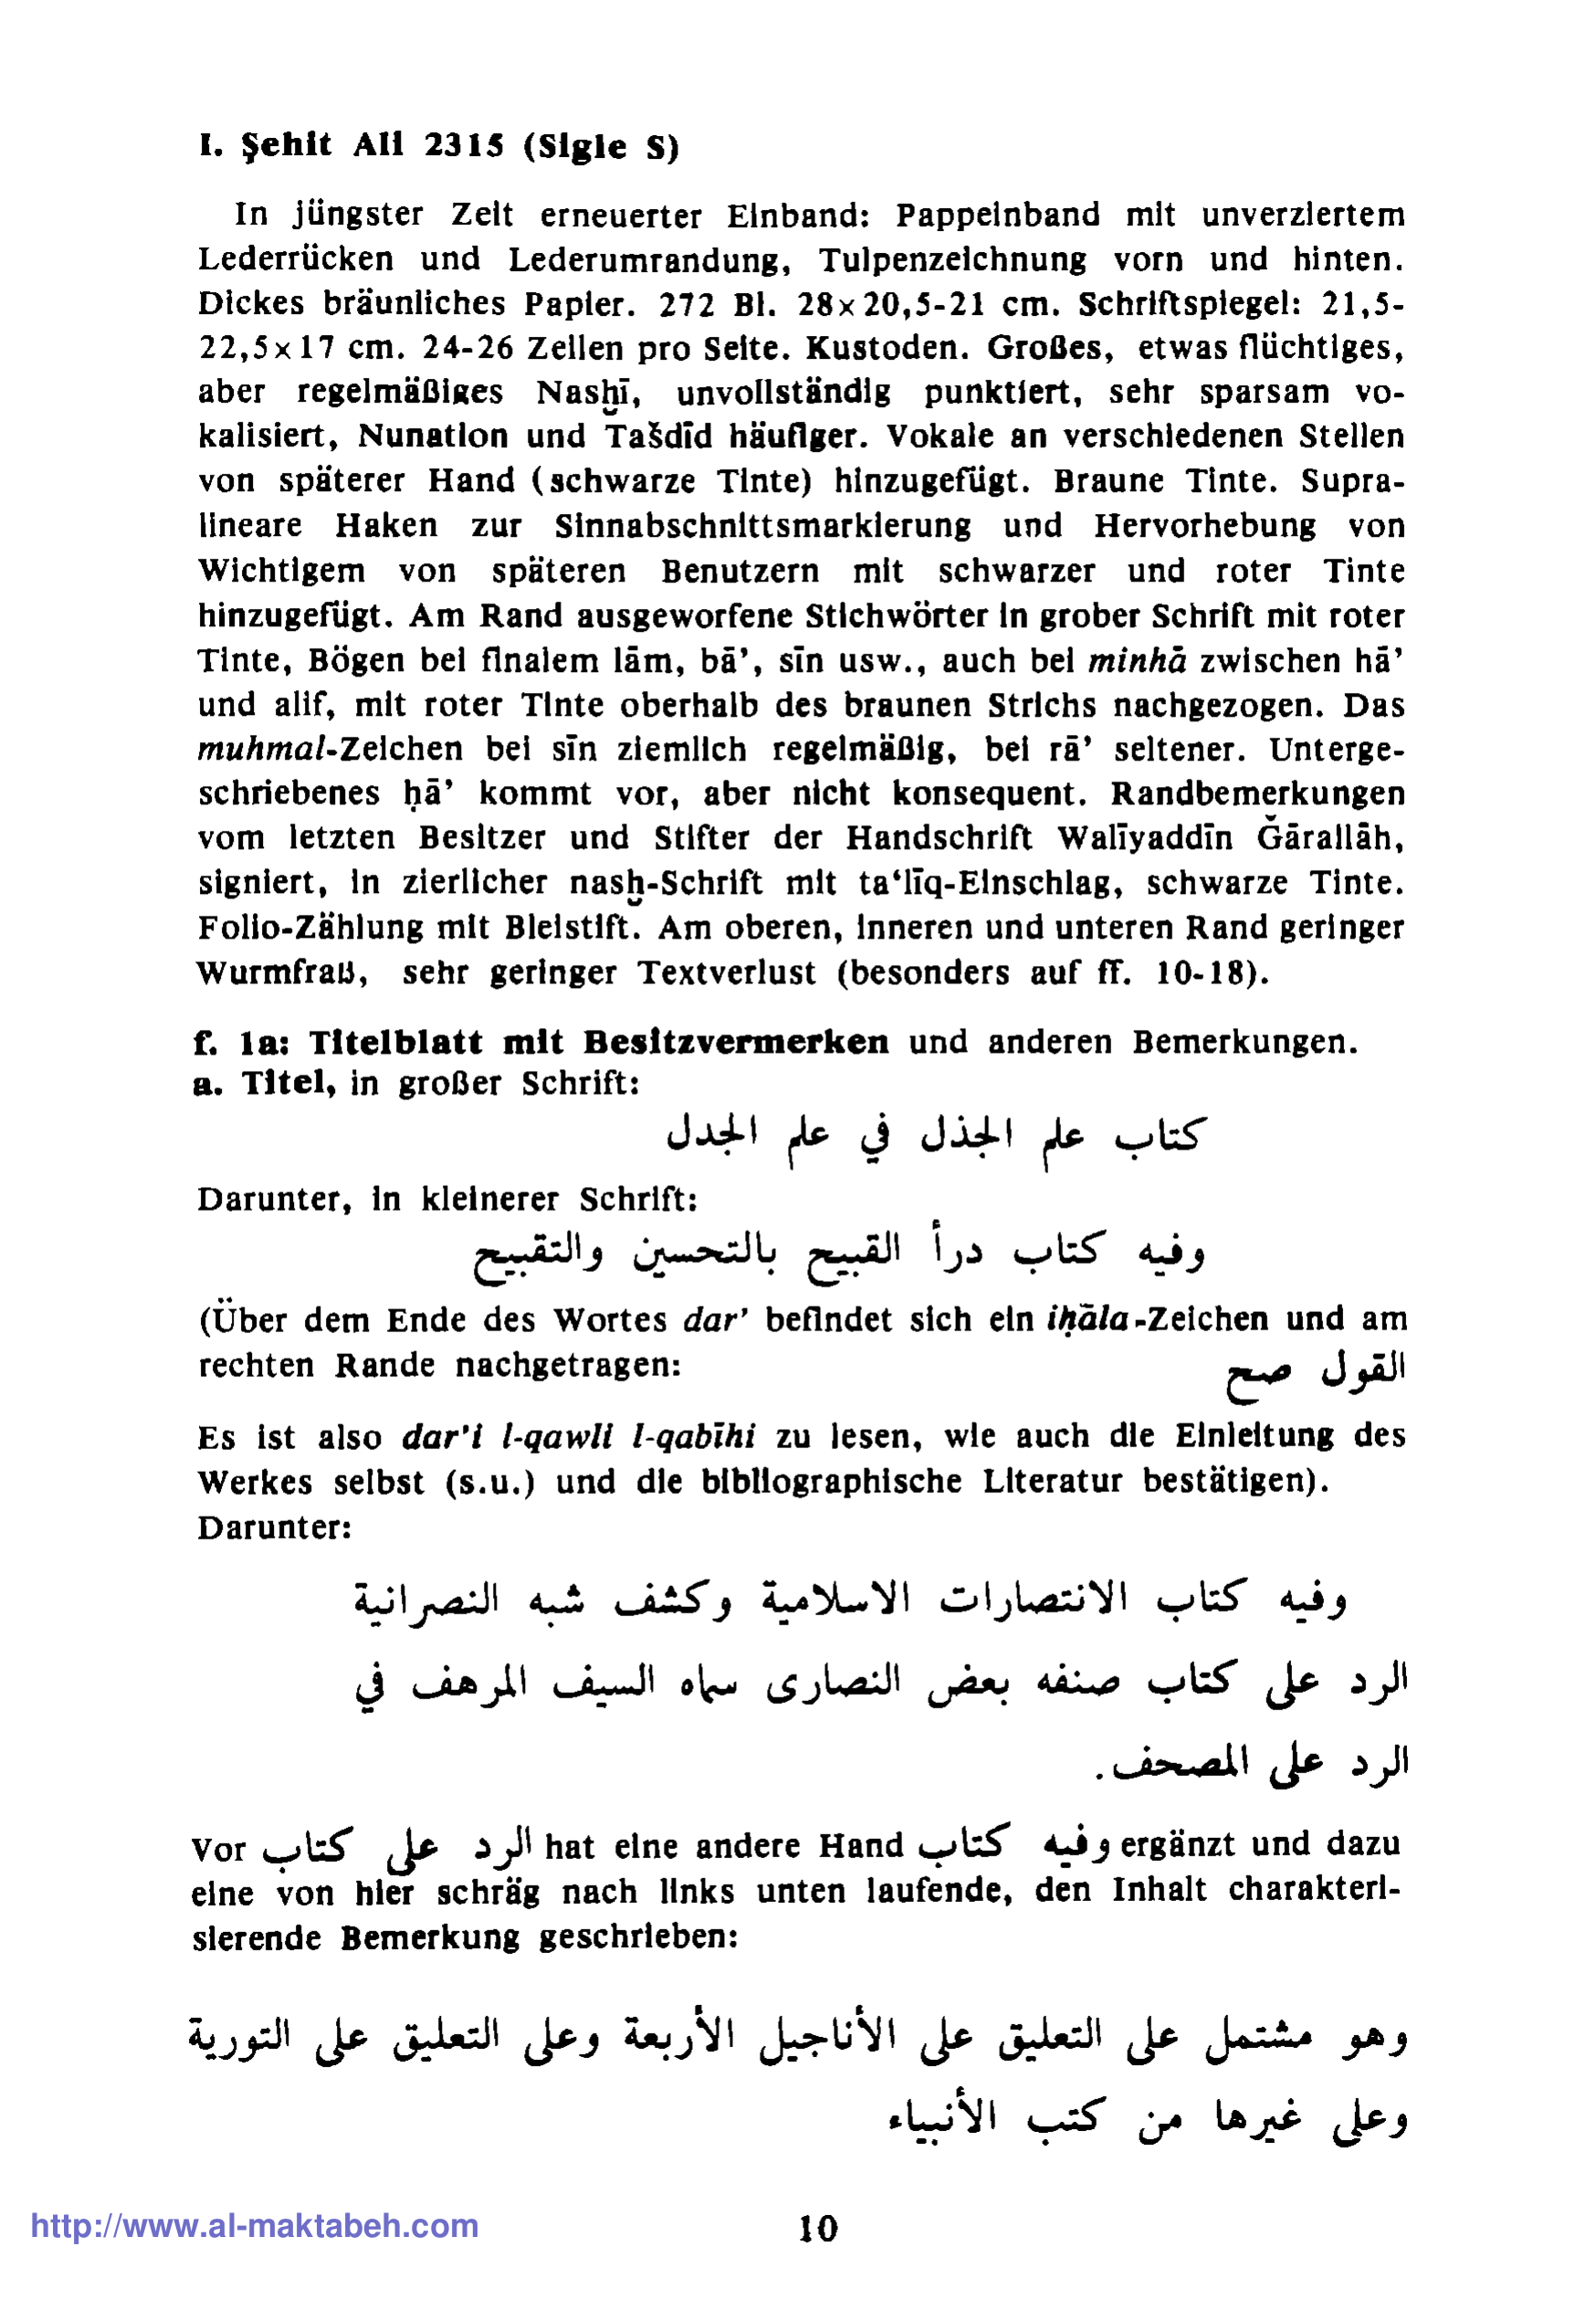 I. Şehit Ali 2315 (Sigle S)
In jüngster Zeit erneuerter Einband: Pappeinband mit unverziertem
Lederrücken und Lederumrandung, Tulpenzeichnung vorn und hinten.
Dickes bräunliches Papier. 272 Bl. 28×20,5-21 cm. Schriftspiegel: 21,5-
22,5×17 cm. 24-26 Zeilen pro Seite. Kustoden. Großes, etwas flüchtiges,
aber regelmäßiges Nasḫī, unvollständig punktiert, sehr sparsam vo-
kalisiert, Nunation und Tašdīd häufiger. Vokale an verschiedenen Stellen
von späterer Hand (schwarze Tinte) hinzugefügt. Braune Tinte. Supra-
lineare Haken zur Sinnabschnittsmarkierung und Hervorhebung von
Wichtigem von späteren Benutzern mit schwarzer und roter Tinte
hinzugefügt. Am Rand ausgeworfene Stichwörter in grober Schrift mit roter
Tinte, Bögen bei finalem lām, bā’, sīn usw., auch bei minhā zwischen hā’
und alif, mit roter Tinte oberhalb des braunen Strichs nachgezogen. Das
muhmal-Zeichen bei sīn ziemlich regelmäßig, bei rā’ seltener. Unterge-
schriebenes ḥā’ kommt vor, aber nicht konsequent. Randbemerkungen
vom letzten Besitzer und Stifter der Handschrift Walīyaddīn Ǧārallāh,
signiert, in zierlicher nasḫ-Schrift mit ta‘līq-Einschlag, schwarze Tinte.
Folio-Zählung mit Bleistift. Am oberen, inneren und unteren Rand geringer
Wurmfraß, sehr geringer Textverlust (besonders auf ff. 10-18).
f. 1a: Titelblatt mit Besitzvermerken und anderen Bemerkungen.
a. Titel, in großer Schrift:
كتاب علم الجذل في علم الجدل
Darunter, in kleinerer Schrift:
وفيه كتاب درأ القبيح بالتحسين والتقبيح
(Über dem Ende des Wortes dar’ befindet sich ein iḥāla-Zeichen und am
rechten Rande nachgetragen: القول صح
Es ist also dar’i l-qawli l-qabīhi zu lesen, wie auch die Einleitung des
Werkes selbst (s.u.) und die bibliographische Literatur bestätigen).
Darunter:
وفيه كتاب الانتصارات الاسلامية وكشف شبه النصرانية
الرد على كتاب صنفه بعض النصارى سماه السيف المرهف في
الرد على المصحف.
Vor الرد على كتاب hat eine andere Hand وفيه كتاب ergänzt und dazu
eine von hier schräg nach links unten laufende, den Inhalt charakteri-
sierende Bemerkung geschrieben:
وهو مشتمل على التعليق على الأناجيل الأربعة وعلى التعليق على التورية
وعلى غيرها من كتب الأنبياء
http://www.al-maktabeh.com
10